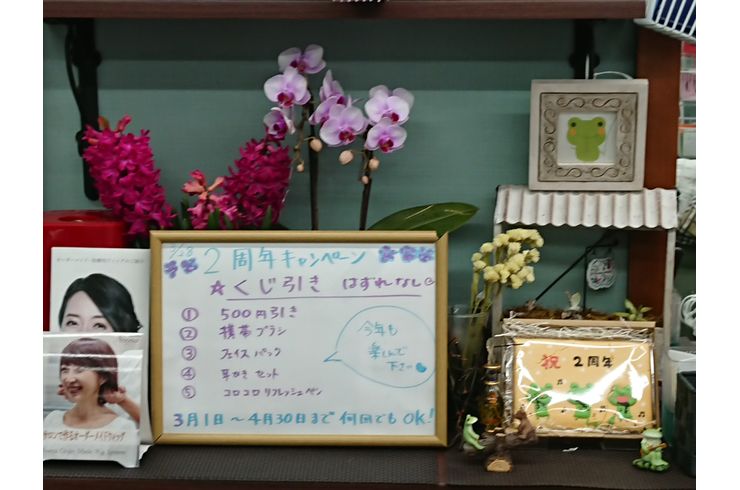 2/28
2周年キャンペーン
☆くじ引き はずれなし
① 500円引き
② 携帯ブラシ
③ フェイスパック
④ 耳かきセット
⑤ コロコロリフレッシュペン
今年も
楽しんで
下さい
3月1日〜4月30日まで 何回でもOK!
祝 2周年
サロンで作るオーダーメイドウィッグ